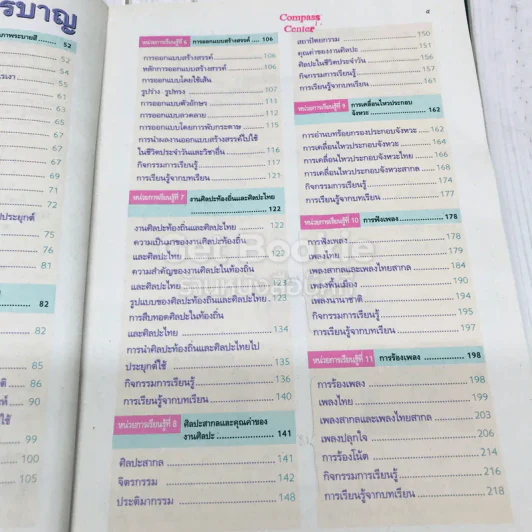 รบาญ
ภาพระบายสี .... 52
52
57
61
65
67
67
71
ประยุกต์
75
76
81
82
82
85
86
90
ใช้
99
100
105
หน่วยการเรียนรู้ที่ 6 การออกแบบสร้างสรรค์ .... 106
การออกแบบสร้างสรรค์ .... 106
หลักการออกแบบสร้างสรรค์ .... 106
การออกแบบโดยใช้เส้น
รูปร่าง รูปทรง .... 107
การออกแบบตัวอักษร .... 111
การออกแบบลวดลาย .... 112
การออกแบบโดยการพับกระดาษ .... 115
การนำผลงานออกแบบสร้างสรรค์ไปใช้
ในชีวิตประจำวันและวิชาอื่น .... 116
กิจกรรมการเรียนรู้ .... 117
การเรียนรู้จากบทเรียน .... 121
หน่วยการเรียนรู้ที่ 7 งานศิลปะท้องถิ่นและศิลปะไทย
.... 122
งานศิลปะท้องถิ่นและศิลปะไทย .... 122
ความเป็นมาของงานศิลปะท้องถิ่น
และศิลปะไทย .... 122
ความสำคัญของงานศิลปะท้องถิ่น
และศิลปะไทย .... 123
รูปแบบของศิลปะท้องถิ่นและศิลปะไทย . 123
การสืบทอดศิลปะในท้องถิ่น
และศิลปะไทย .... 134
การนำศิลปะท้องถิ่นและศิลปะไทยไป
ประยุกต์ใช้ .... 135
กิจกรรมการเรียนรู้ .... 136
การเรียนรู้จากบทเรียน .... 140
หน่วยการเรียนรู้ที่ 8 ศิลปะสากลและคุณค่าของ
งานศิลปะ .... 141
ศิลปะสากล .... 141
จิตรกรรม .... 142
ประติมากรรม .... 148
Compass
Center
สถาปัตยกรรม .... 150
คุณค่าของงานศิลปะ .... 151
ศิลปะในชีวิตประจำวัน .... 156
กิจกรรมการเรียนรู้ .... 157
การเรียนรู้จากบทเรียน .... 161
หน่วยการเรียนรู้ที่ 9 การเคลื่อนไหวประกอบ
จังหวะ .... 162
การอ่านบทร้อยกรองประกอบจังหวะ .... 162
การเคลื่อนไหวประกอบจังหวะ .... 164
การเคลื่อนไหวประกอบจังหวะไทย .... 166
การเคลื่อนไหวประกอบจังหวะสากล .... 168
กิจกรรมการเรียนรู้ .... 174
การเรียนรู้จากบทเรียน .... 177
หน่วยการเรียนรู้ที่ 10 การฟังเพลง .... 178
การฟังเพลง .... 178
เพลงไทย .... 179
เพลงสากลและเพลงไทยสากล .... 184
เพลงพื้นเมือง .... 190
เพลงนานาชาติ .... 194
กิจกรรมการเรียนรู้ .... 195
การเรียนรู้จากบทเรียน .... 197
หน่วยการเรียนรู้ที่ 11 การร้องเพลง .... 198
การร้องเพลง .... 198
เพลงไทย .... 199
เพลงสากลและเพลงไทยสากล .... 203
เพลงปลุกใจ .... 206
การร้องโน้ต .... 214
กิจกรรมการเรียนรู้ .... 216
การเรียนรู้จากบทเรียน .... 218